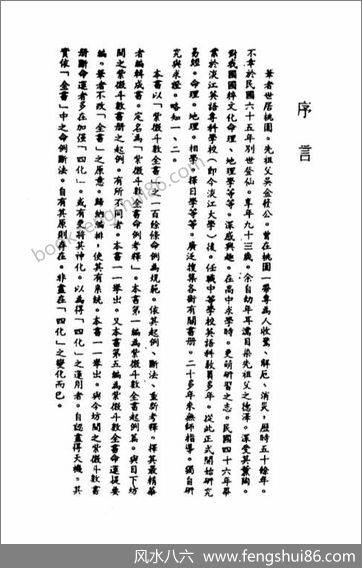 序言
筆者世居桃園。先祖父吳金發公。曾在桃園一帶專為人收驚、解厄、消災,歷時五十餘年。
不幸於民國六十五年別世登仙。享年九十三歲。余自幼年耳濡目染先祖父之德澤。深受其薰陶。
對我國國粹文化命理、地理學等等。深感興趣。在高中求學時。更萌研習之志。民國四十六年畢
業於淡江英語專科學校(即今淡江大學)後。任職中等學校英語科教員多年。從此正式開始研究
易經。命理。地理。相學。擇日學等等。廣泛搜集各術有關書册。二十多年來無師指導。獨自研
究與求證。略知一、二。
本書以「紫微斗數全書」之一百餘條命例為規範。依其起例、斷法、重新考釋。擇其最精華
者編輯成書。定名為「紫微斗數全書命例考釋」。本書第一編為紫微斗數全書起例篇。與目下坊
間之紫微斗數書册之起例。有所不同者。本書一一舉出。又本書第五編為紫微斗數全書命運提要
編。筆者不改「全書」之原意。歸納編排,使其有系統。本書一一舉出。與今坊間之紫微斗數書
册斷命運者多在加强「四化」。或有更將其神化。以為得「四化」之運用者。自認盡得天機。其
實依「全書」中之命例斷法。自有其原則存在。非盡在「四化」之變化而已。
book.fengshui86.com
风水八六 www.fengshui86.com